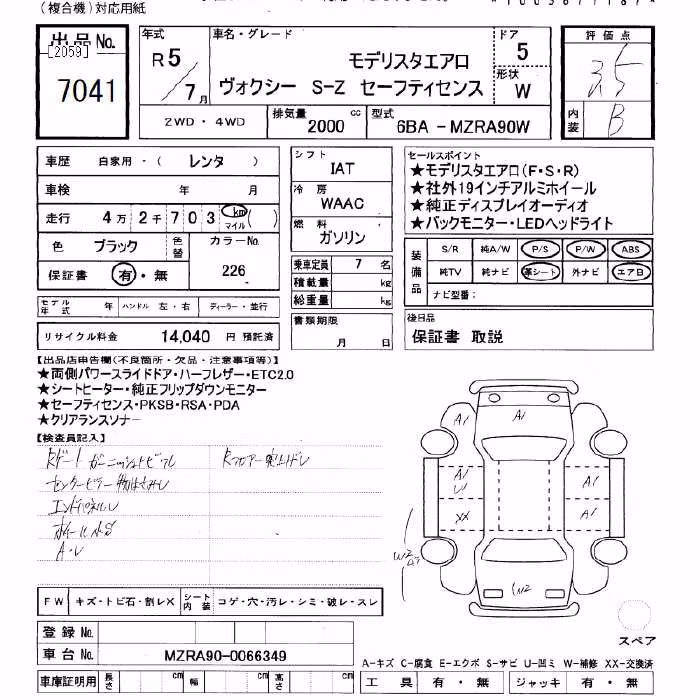 (複合機)対応用紙
出品No.
[2059]
7041
年式
R5
/7月
車名・グレード
モデリスタエアロ
ヴォクシー S-Z セーフティセンス
ドア
5
形状
W
評価点
3.5
内装
B
2WD・4WD
排気量
2000 cc
型式
6BA-MZRA90W
車歴
自家用・(レンタ)
車検
年 月
走行
4万2千703 km マイル( )
色
ブラック
色替
カラーNo.
226
保証書
有・無
モデル年式
年
ハンドル 左・右
ディーラー・並行
リサイクル料金 14,040 円 預託済
シフト
IAT
冷房
WAAC
燃料
ガソリン
乗車定員 7 名
積載量 kg
総重量 kg
書類期限
月 日
セールスポイント
★モデリスタエアロ(F・S・R)
★社外19インチアルミホイール
★純正ディスプレイオーディオ
★バックモニター・LEDヘッドライト
装備品
S/R 純A/W P/S P/W ABS
純TV 純ナビ 革シート 外ナビ エアB
ナビ型番:
後日品
保証書 取説
【出品店申告欄(不良箇所・欠品・注意事項等)】
★両側パワースライドドア・ハーフレザー・ETC2.0
★シートヒーター・純正フリップダウンモニター
★セーフティセンス・PKSB・RSA・PDA
★クリアランスソナー
【検査員記入】
エンドパネルレ
ホイールキS
A・レ
A1
A1
A1
A1
U1
XX
A1
W2
W2
FW
キズ・トビ石・割レX
シート内装
コゲ・穴・汚レ・シミ・破レ・スレ
登録No.
車台No.
MZRA90-0066349
車庫証明用
長さ cm
幅 cm
高さ cm
スペア
A-キズ C-腐食 E-エクボ S-サビ U-凹ミ W-補修 XX-交換済
工具 有・無 ジャッキ 有・無